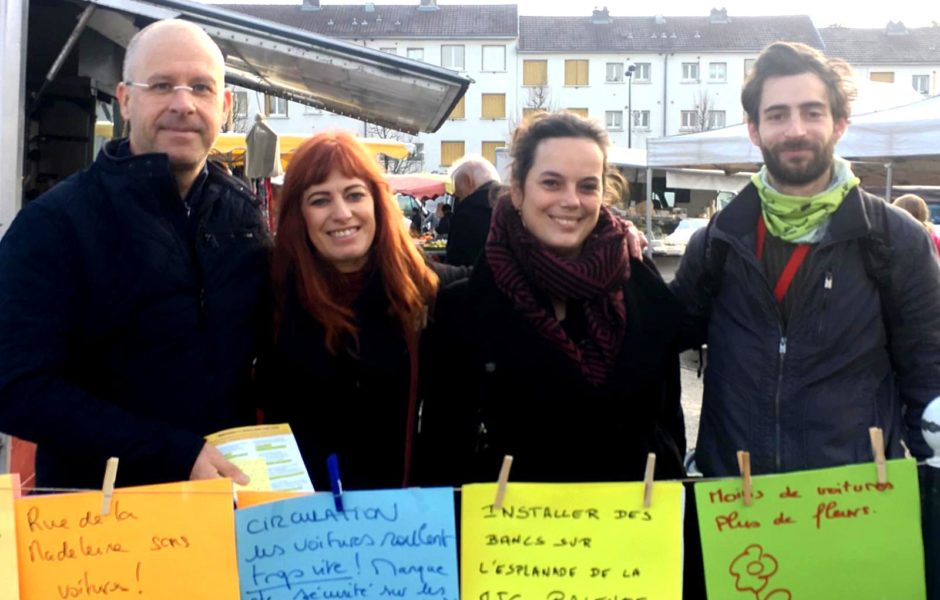 Rue de la
Madeleine sans
voitures!
CIRCULATION
les voitures roullent
trop vite! Manque
de sécurité sur les
INSTALLER DES
BANCS SUR
L'ESPLANADE DE LA
Moins de voitures
Plus de fleurs.